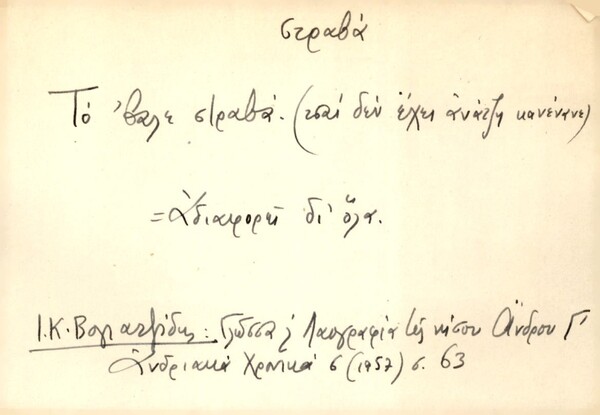 στραβά
Τό 'βαλε στραβά. (τσαί δέν ἔχει ἀνάτζη κανένανε)
= Ἀδιαφορεῖ δι' ὅλα.
Ι.Κ. Βογιατζίδης: Γλῶσσα κ' Λαογραφία τῆς νήσου Ἄνδρου Γ'
Ἀνδριακά Χρονικά 6 (1957) σ. 63